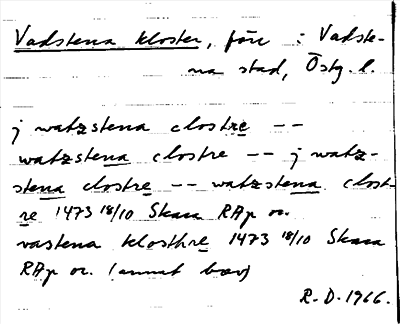 Vadstena kloster, förr i Vadste-
na stad, Östg. l.
j watzstena clostre --
watzstena clostre -- j watz-
stena clostre -- watzstena clost-
re 1473 18/10 Skara RAp or.
vastena klosthre 1473 18/10 Skara
RAp or. (annat brev)
R. D. 1966.